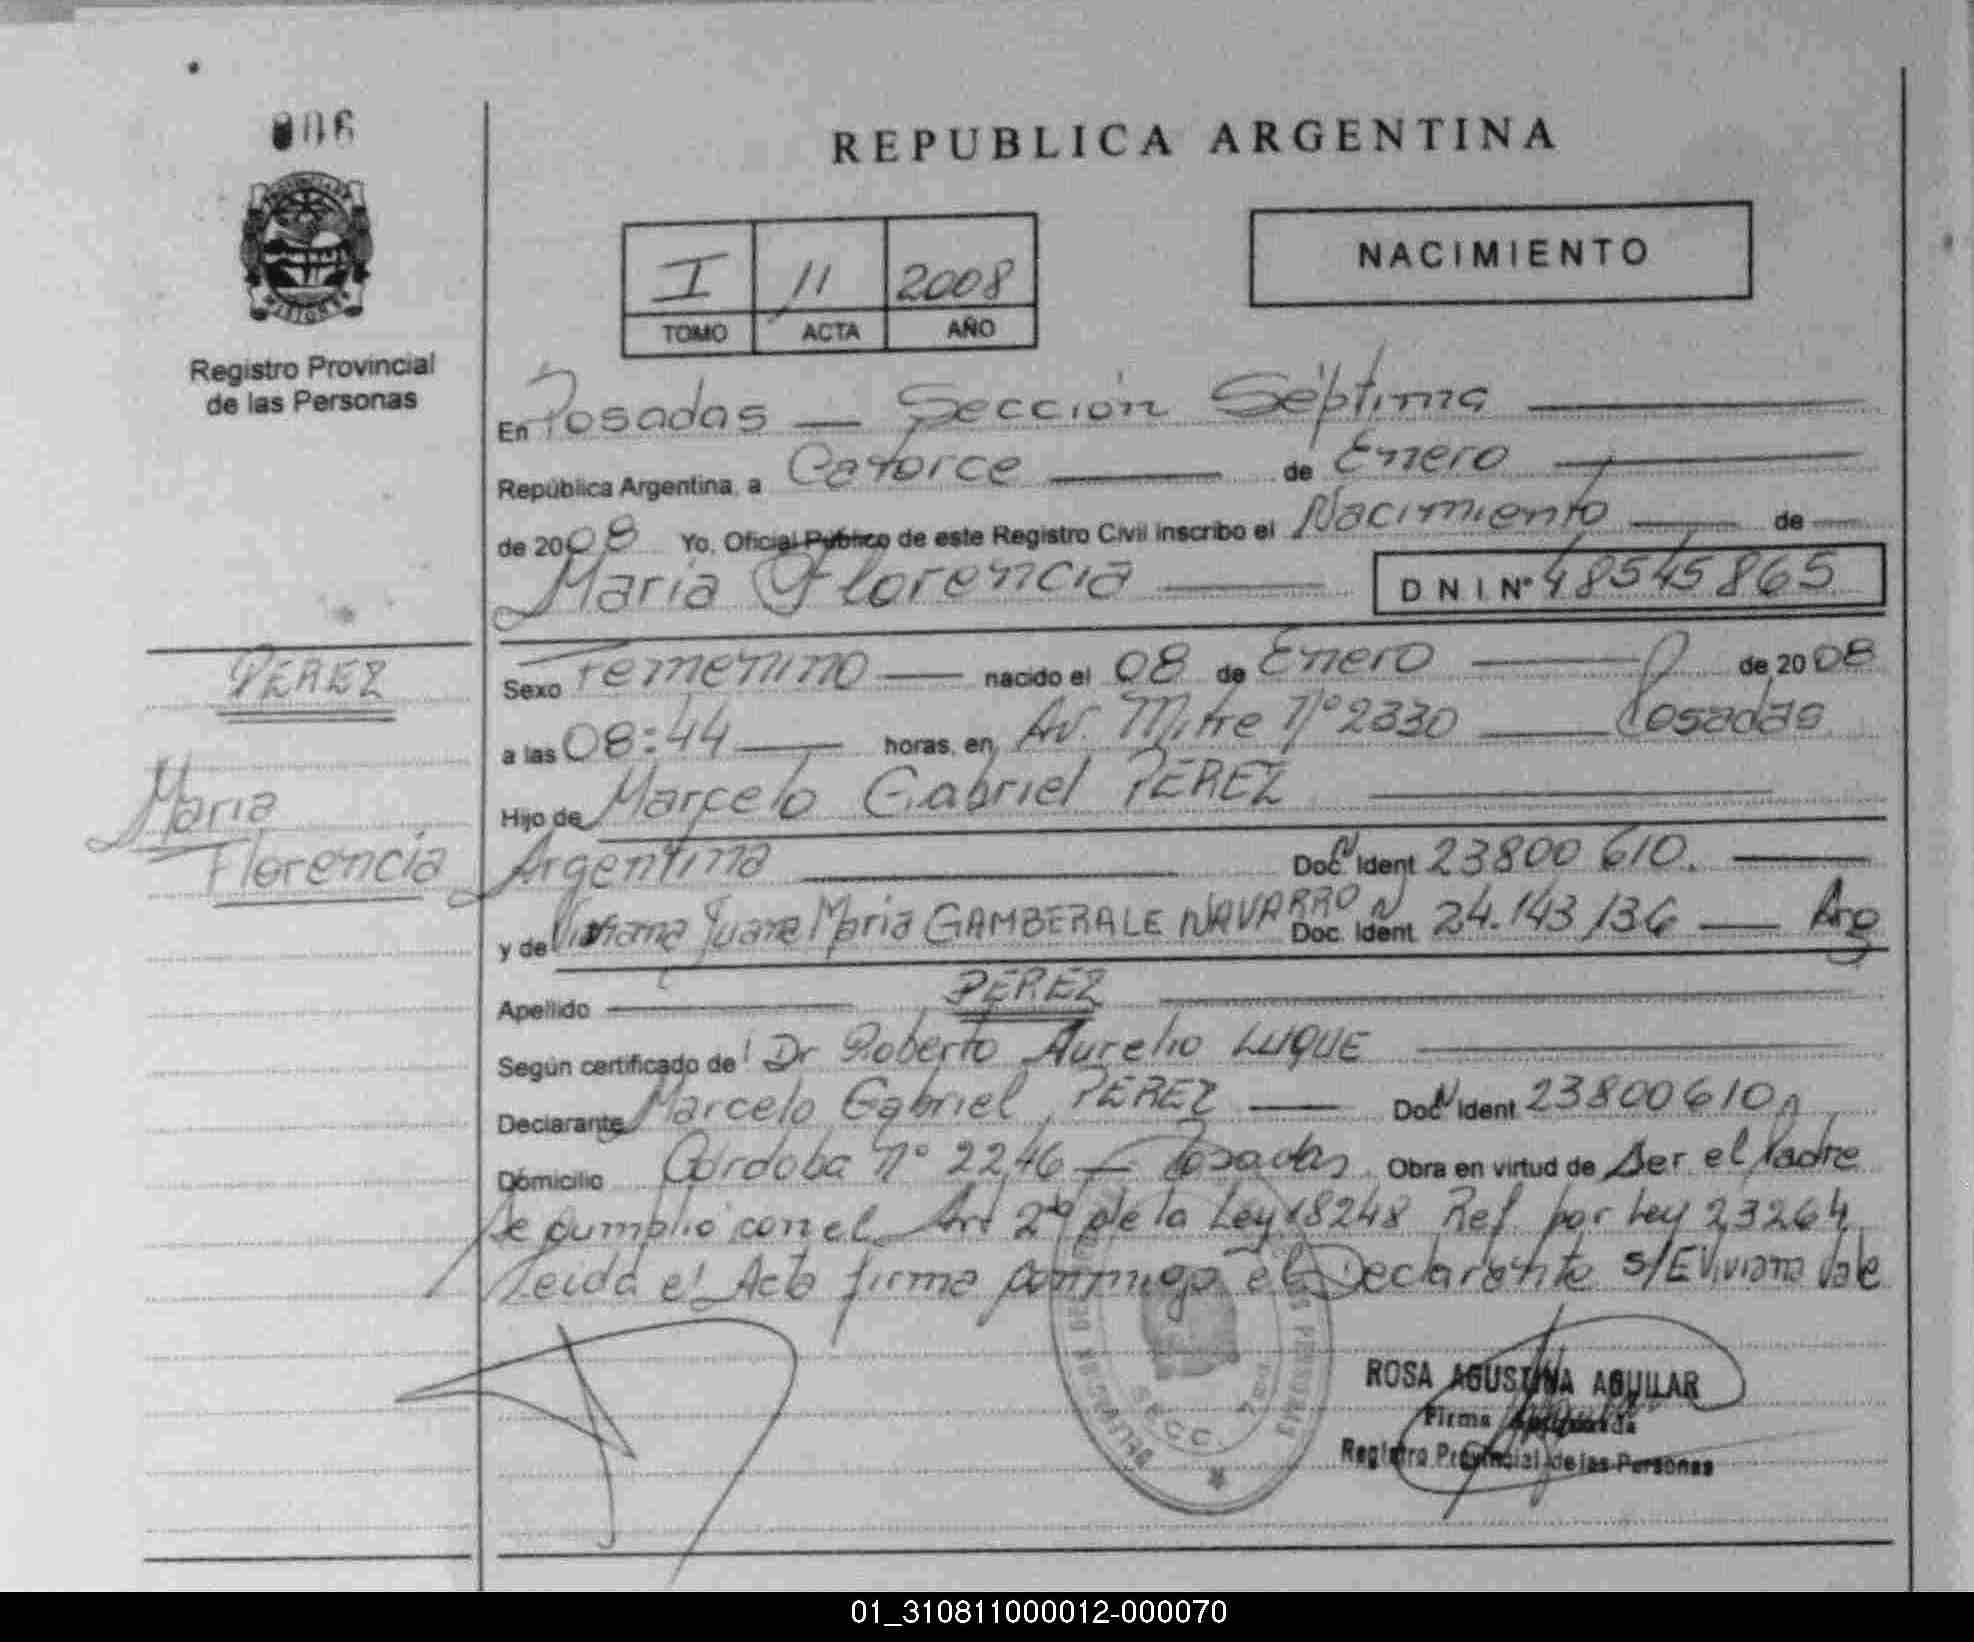 006
REPUBLICA ARGENTINA
NACIMIENTO
I 11 2008
TOMO ACTA AÑO
MISIONES
Registro Provincial
de las Personas
En Posadas — Sección Séptima
República Argentina, a Catorce de Enero
de 2008 Yo, Oficial Público de este Registro Civil inscribo el Nacimiento de
María Florencia
D N I. Nº 48545865
PEREZ
María
Florencia
Sexo Femenino nacido el 08 de Enero de 2008
a las 08:44 horas, en Av. Mitre Nº 2330 Posadas
Hijo de Marcelo Gabriel PEREZ
Argentina Doc. Ident 23800610.
y de Viviana Juana María GAMBERALE NAVARRO Doc. Ident. 24.143.136 — Arg
Apellido PEREZ
Según certificado de Dr Roberto Aurelio LUQUE
Declarante Marcelo Gabriel PEREZ Doc Ident 23800610
Domicilio Córdoba Nº 2246 — Posadas Obra en virtud de Ser el Padre
Se cumplió con el Art 2º de la Ley 18248 Ref. por Ley 23264
Leida el Acta firma conmigo el Declarante S/E Viviana Vale
SECC. 7
ROSA AGUSTINA AGUILAR
Firma Autorizada
Registro Provincial de las Personas
01_310811000012-000070